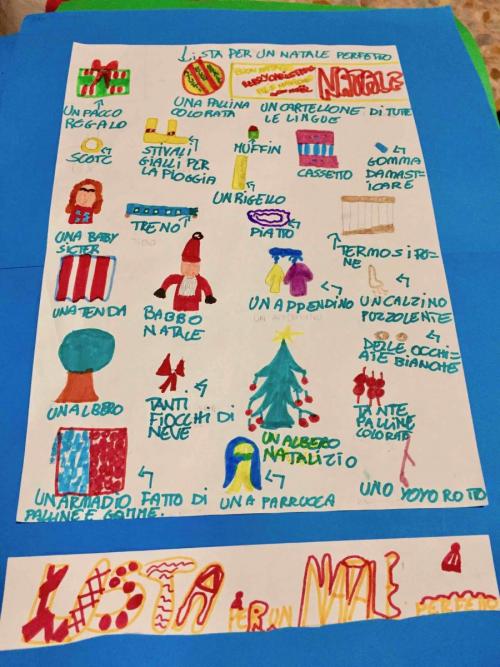 LISTA PER UN NATALE PERFETTO
UN PACCO
REGALO
UNA PALLINA
COLORATA
BUON NATALE
NATALE
UN CARTELLONE DI TUTE
LE LINGUE
SCOTC
STIVALI
GIALLI PER
LA PIOGGIA
MUFFIN
UN RIGELLO
CASSETTO
GOMMA
DAMAST=
ICARE
UNA BABY
SICTER
TRENO
PIATTO
TERMOSIFO=
NE
UNA TENDA
BABBO
NATALE
UN APPENDINO
UN CALZINO
PUZZOLENTE
DELLE OCCHI=
AIE BIANCHE
UN ALBERO
TANTI
FIOCCHI DI
NEVE
UN ALBERO
NATALIZIO
TANTE
PALLINE
COLORATE
UN ARMADIO FATTO DI
PALLINE E GOMME.
UNA PARRUCCA
UNO YOYO ROTTO
LISTA PER UN NATALE PERFETTO